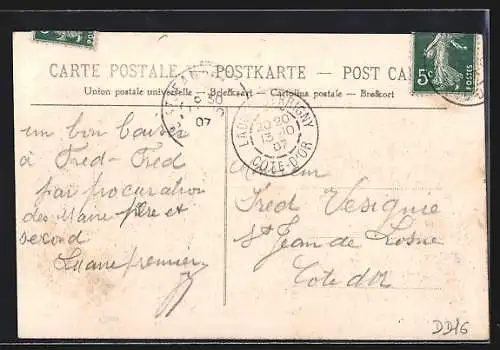 CARTE POSTALE — POSTKARTE — POST CA
Union postale universelle — Briefkaart — Cartolina postale — Brefkort
5c
POSTES
30
07
20 20
13 -10
07
COTE-D'OR
un bon baiser
à Fred-Fred
par procuration
des Maire père et
second
Maire premier
Monsieur
Fred Vesignie
St Jean de Losne
Cote d'Or
DD16